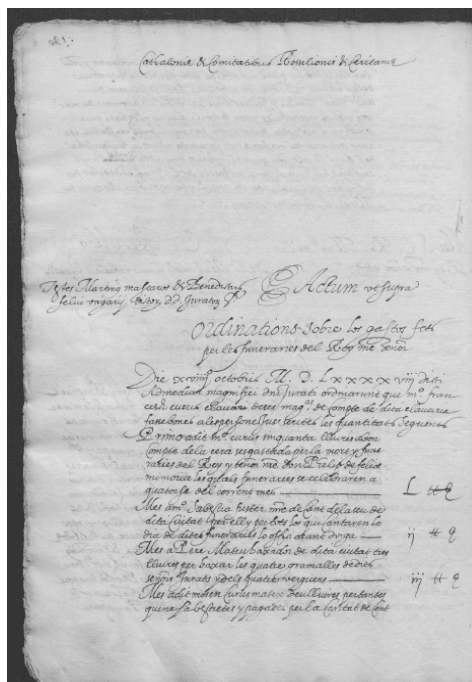 Cathalonie & Comitatibus Rossilionis & Ceritanie
Testes Martinus mascaros & Benedictus
feliu
Actum ut supra
Ordinations sobre los gastos fets
per les funeraries del Rey
Die xviiij octobris M. D. Lxxxxviij dicti
Admodum magnifici dni Jurati ordinaren que mº fran
cesch curus clavari de compte de dita clavaria
fase bones a les persones Jus scrites les quantitats seguents
Primo a dit mº curus sinquanta lliures a bon
compte de la cera se gastada per la mort y fune
raries del Rey y senor don Phelip de felice
memoria les quals funeraries se celebraren a
quatorse del corrent mes L ++ E
Mes a mº fuster mre de cant de la seu de
dita ciutat per ell y per tots los qui cantaren lo
dia de dites funeraries lo offici ij ++ E
Mes a Pere Mateu baxador de dita ciutat tres
lliures per baxar les quatre gramalles de dits
senors Jurats y dels quatre verguers iij ++ E
Mes a dit mosen curus mateix lliures per tantes
que ne ha bestretes y pagades per la caritat de